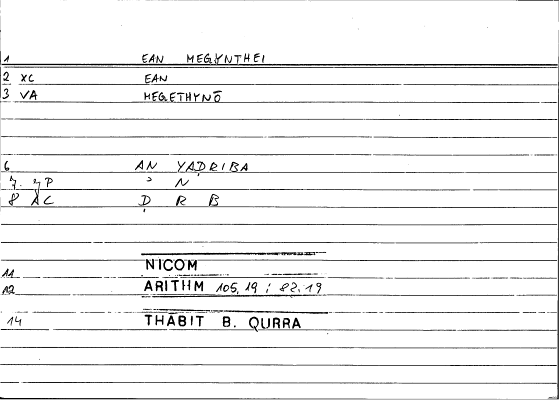 1 EAN MEGYNTHEI
2 XC EAN
3 VA MEGETHYNŌ
6 AN YAḌRIBA
7 YP ʾ N
8 AC Ḍ R B
11 NICOM
12 ARITHM 105,19 ; 82,19
14 THĀBIT B. QURRA